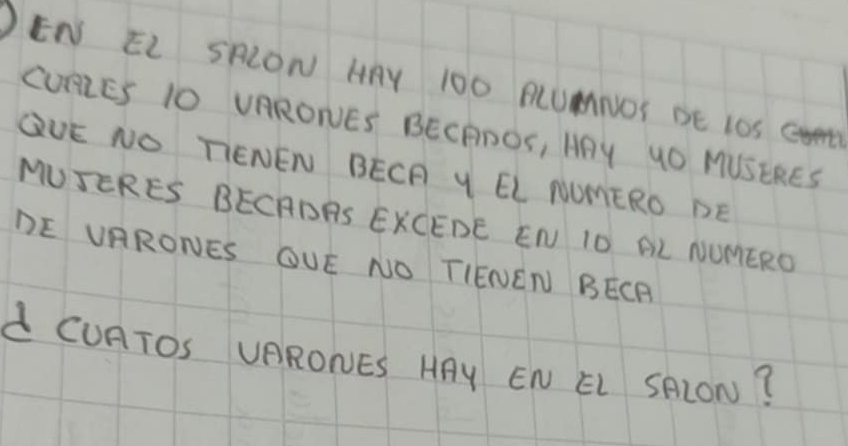 ) EN EL SALON HAY 100 ALUMNOS DE LOS
CUALES 10 VARONES BECADOS, HAY 40 MUJERES
QUE NO TIENEN BECA Y EL NUMERO DE
MUJERES BECADAS EXCEDE EN 10 AL NUMERO
DE VARONES QUE NO TIENEN BECA
¿ CUATOS VARONES HAY EN EL SALON?